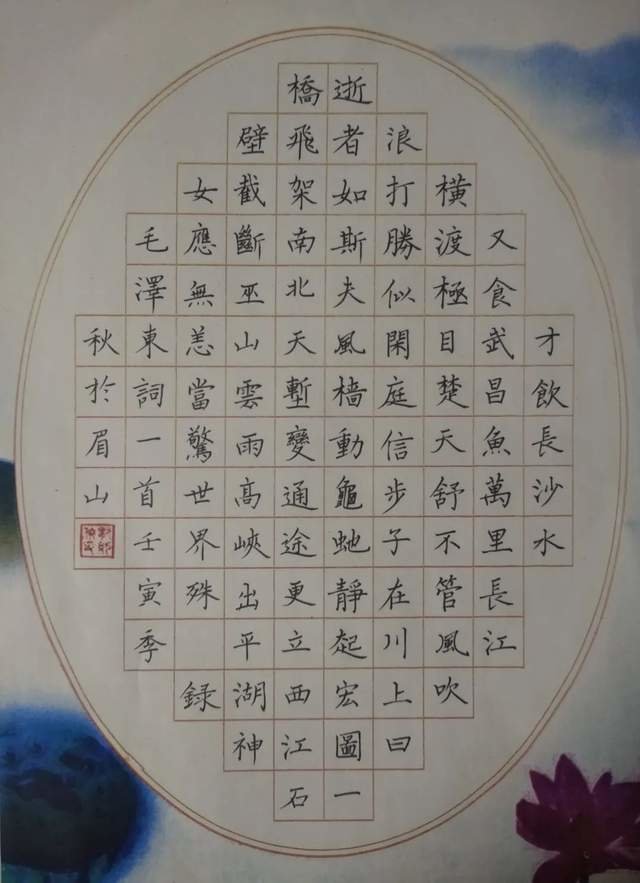 才飲長沙水
又食武昌魚萬里長江
橫渡極目楚天舒不管風吹
浪打勝似閑庭信步子在川上曰
逝者如斯夫風檣動龜虵靜起宏圖一
橋飛架南北天塹變通途更立西江石
壁截斷巫山雲雨高峽出平湖神
女應無恙當驚世界殊 錄
毛澤東詞一首壬寅季
秋於眉山